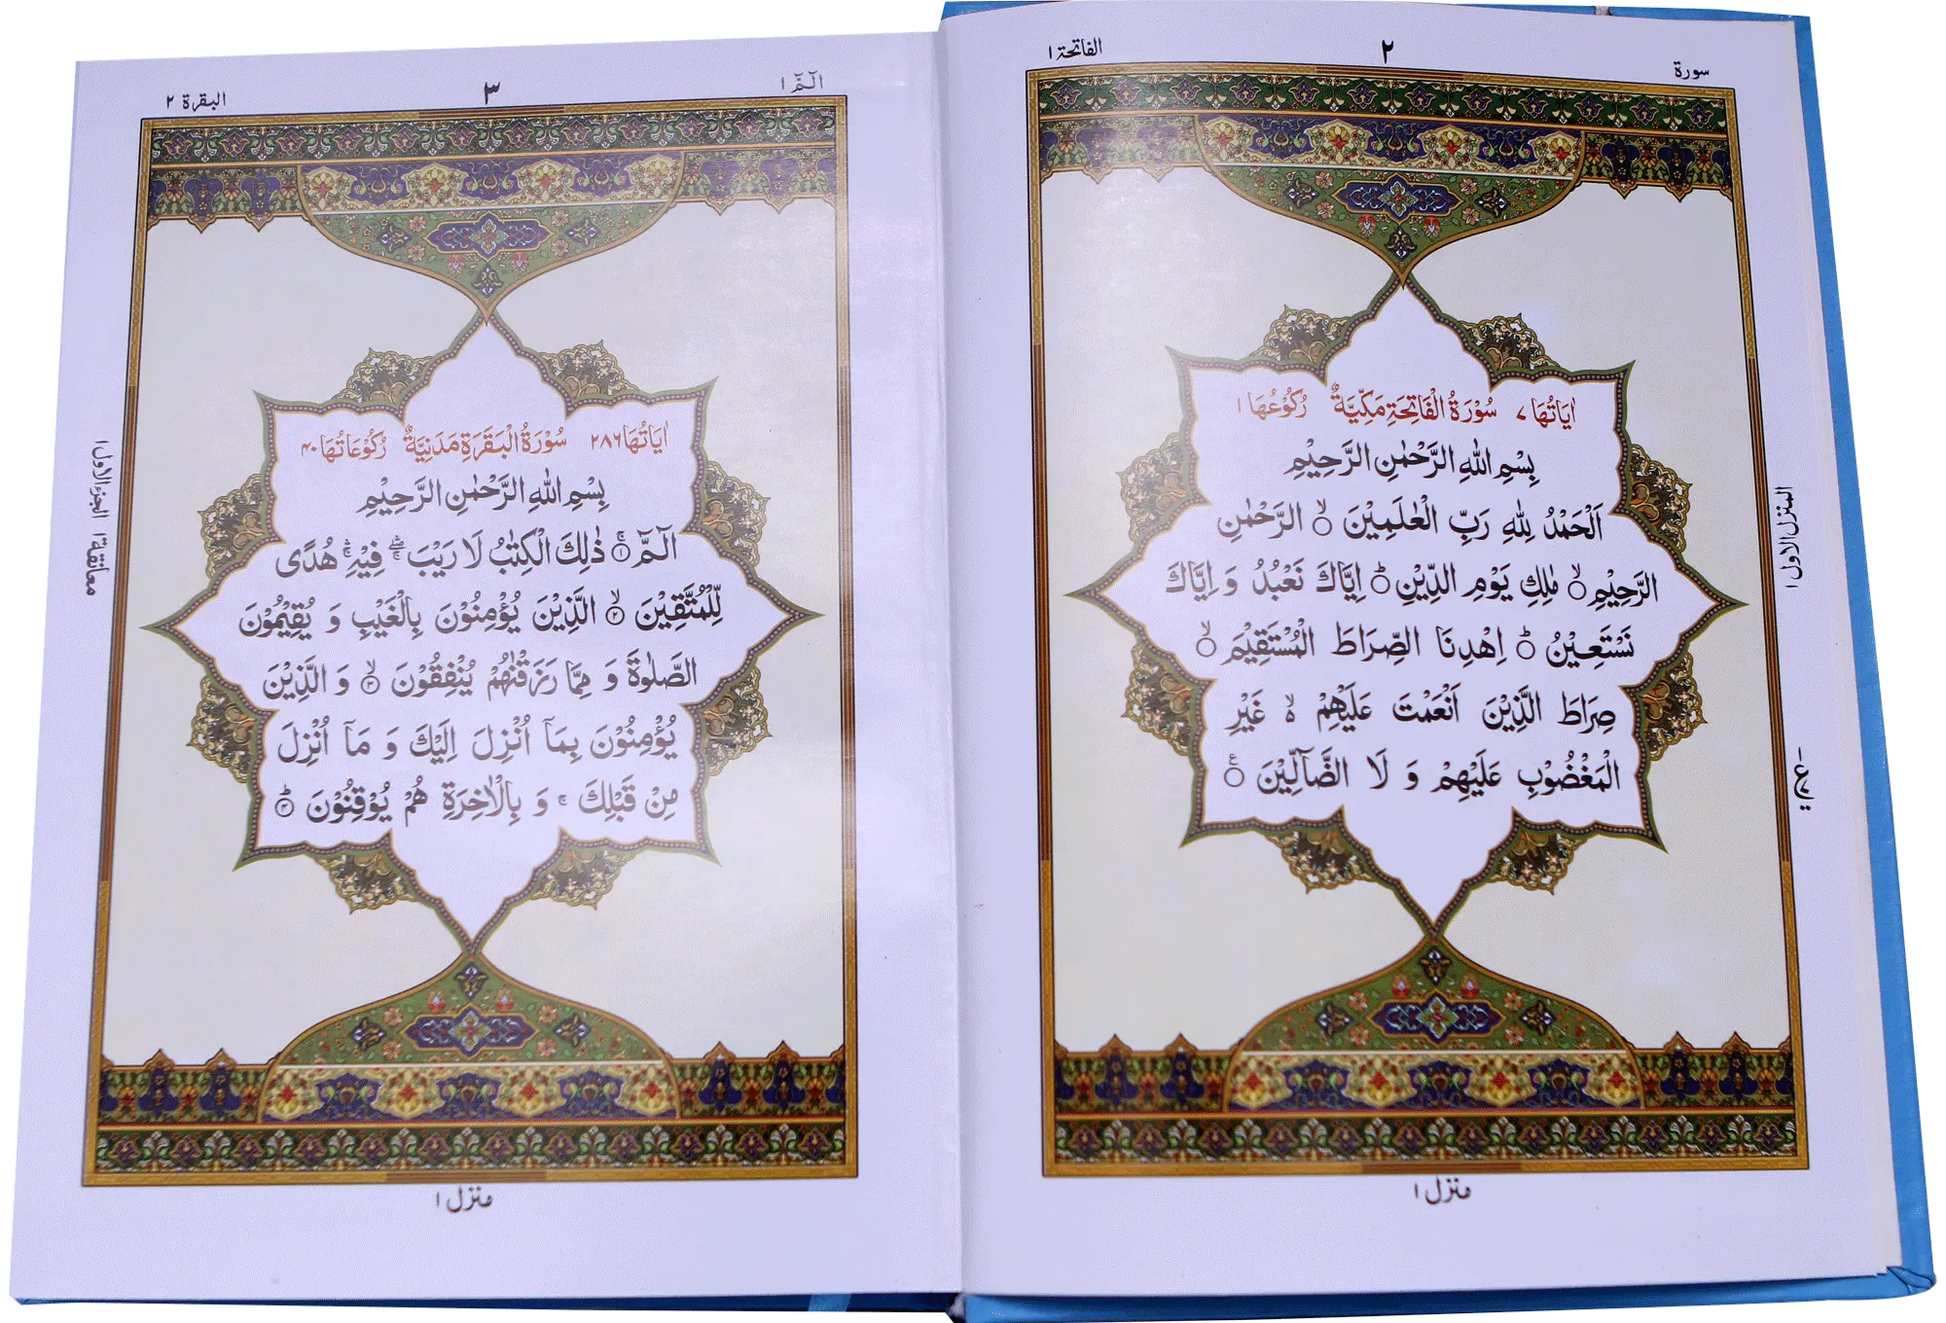 سورة ٢ الفاتحة ١
اٰيَاتُهَا ٧ سُوْرَةُ الْفَاتِحَةِ مَكِّيَّةٌ رُكُوْعُهَا ١
بِسْمِ اللّٰهِ الرَّحْمٰنِ الرَّحِيْمِ
اَلْحَمْدُ لِلّٰهِ رَبِّ الْعٰلَمِيْنَ ۙ الرَّحْمٰنِ
الرَّحِيْمِ ۙ مٰلِكِ يَوْمِ الدِّيْنِ ؕ اِيَّاكَ نَعْبُدُ وَ اِيَّاكَ
نَسْتَعِيْنُ ؕ اِهْدِنَا الصِّرَاطَ الْمُسْتَقِيْمَ ۙ
صِرَاطَ الَّذِيْنَ اَنْعَمْتَ عَلَيْهِمْ ۙ غَيْرِ
الْمَغْضُوْبِ عَلَيْهِمْ وَ لَا الضَّآلِّيْنَ
المنزل الاول ١
منزل ١
الٓمّٓ ١ ٣ البقرة ٢
اٰيَاتُهَا ٢٨٦ سُوْرَةُ الْبَقَرَةِ مَدَنِيَّةٌ رُكُوْعَاتُهَا ۴۰
بِسْمِ اللّٰهِ الرَّحْمٰنِ الرَّحِيْمِ
الٓمّٓ ۚ ١ ذٰلِكَ الْكِتٰبُ لَا رَيْبَ ۛۚ فِيْهِ ۛۚ هُدًى
لِّلْمُتَّقِيْنَ ۙ ٢ الَّذِيْنَ يُؤْمِنُوْنَ بِالْغَيْبِ وَ يُقِيْمُوْنَ
الصَّلٰوةَ وَ مِمَّا رَزَقْنٰهُمْ يُنْفِقُوْنَ ۙ ٣ وَ الَّذِيْنَ
يُؤْمِنُوْنَ بِمَآ اُنْزِلَ اِلَيْكَ وَ مَآ اُنْزِلَ
مِنْ قَبْلِكَ ۚ وَ بِالْاٰخِرَةِ هُمْ يُوْقِنُوْنَ ؕ ۴
معانقة ١ الجزء الاول ١
منزل ١